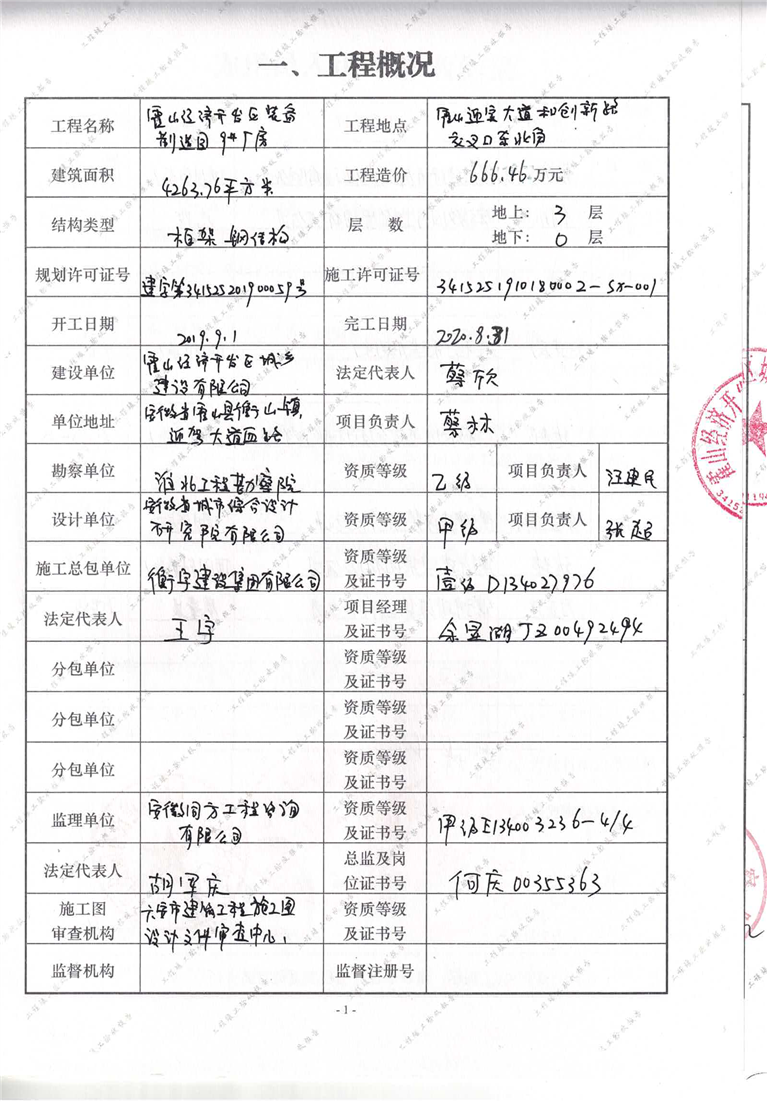 一、工程概况
工程名称 霍山经济开发区装备制造园9#厂房 工程地点 霍山迎宾大道和创新路交叉口东北角
建筑面积 4263.76平方米 工程造价 666.46万元
结构类型 框架 钢结构 层 数 地上：3 层
地下：0 层
规划许可证号 建字第341525201900059号 施工许可证号 3415251910180002-SX-001
开工日期 2019.9.1 完工日期 2020.8.31
建设单位 霍山经济开发区城乡建设有限公司 法定代表人 蔡欣
单位地址 安徽省霍山县衡山镇迎驾大道西路 项目负责人 蔡林
勘察单位 淮北工程勘察院 资质等级 乙级 项目负责人 汪建民
设计单位 安徽省城市综合设计研究院有限公司 资质等级 甲级 项目负责人 张超
施工总包单位 衡宇建设集团有限公司 资质等级及证书号 壹级 D134027976
法定代表人 王宇 项目经理及证书号 余昱湖 00492494
分包单位 资质等级及证书号
分包单位 资质等级及证书号
分包单位 资质等级及证书号
监理单位 安徽同方工程咨询有限公司 资质等级及证书号 甲级E134003236-4/4
法定代表人 胡军庆 总监及岗位证书号 何庆 00355363
施工图审查机构 六安市建筑工程施工图设计文件审查中心 资质等级及证书号
监督机构 监督注册号
- 1 -
霍山经济开
区城
34152
工程竣工验收报告